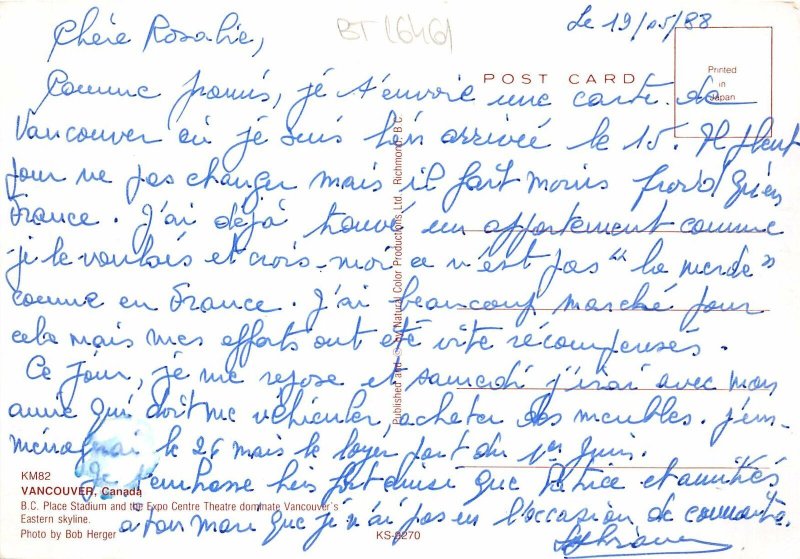 Le 19/05/88
Chère Rosalie,
BT 16461
POST CARD
Printed
in
Japan
Comme promis, je t'envoie une carte de
Vancouver où je suis bien arrivée le 15. Il pleut
pour ne pas changer mais il fait moins froid qu'en
France. J'ai déjà trouvé un appartement comme
je le voulais et crois-moi ce n'est pas "la merde"
comme en France. J'ai beaucoup marché pour
cela mais mes efforts ont été vite récompensés.
Ce jour, je me repose et samedi j'irai avec mon
amie qui doit me véhiculer, acheter des meubles. J'em-
ménagerai le 26 mais le loyer part du 1er Juin.
Je t'embrasse bien fort ainsi que Patrice et amitiés
à ton mari que je n'ai pas eu l'occasion de connaître.
Published and © by Natural Color Productions Ltd., Richmond, B.C.
KM82
VANCOUVER, Canada
B.C. Place Stadium and the Expo Centre Theatre dominate Vancouver's
Eastern skyline.
Photo by Bob Herger
KS-6270